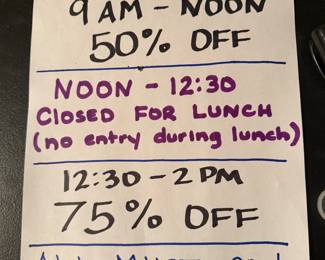 9 AM - NOON
50% OFF
NOON - 12:30
CLOSED FOR LUNCH
(no entry during lunch)
12:30 - 2 PM
75% OFF